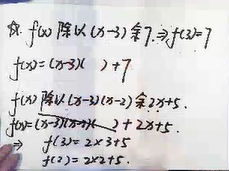 ☆. f(x) 除以 (x-3) 余7. ⇒ f(3)=7
f(x)=(x-3)( )+7
f(x) 除以 (x-3)(x-2) 余 2x+5.
f(x)=(x-3)(x-2)( )+2x+5.
⇒ f(3)=2×3+5
f(2)=2×2+5.